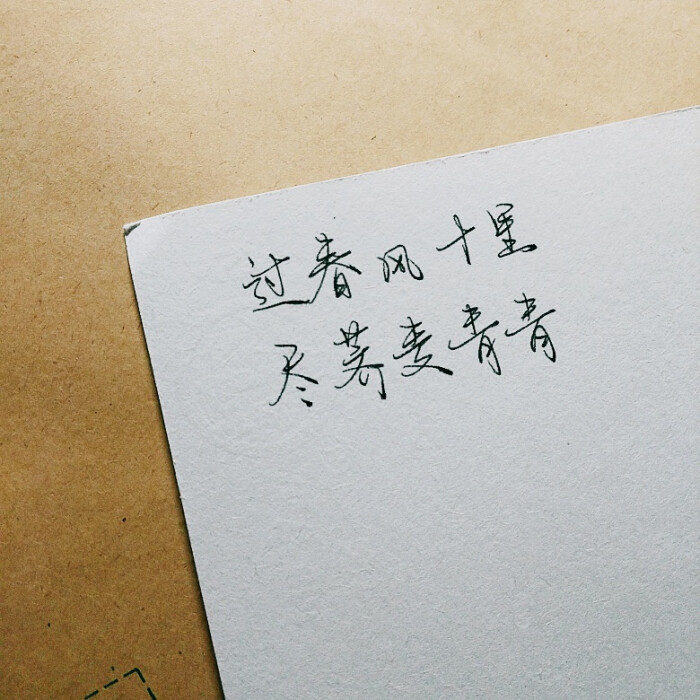 过春风十里
尽荠麦青青